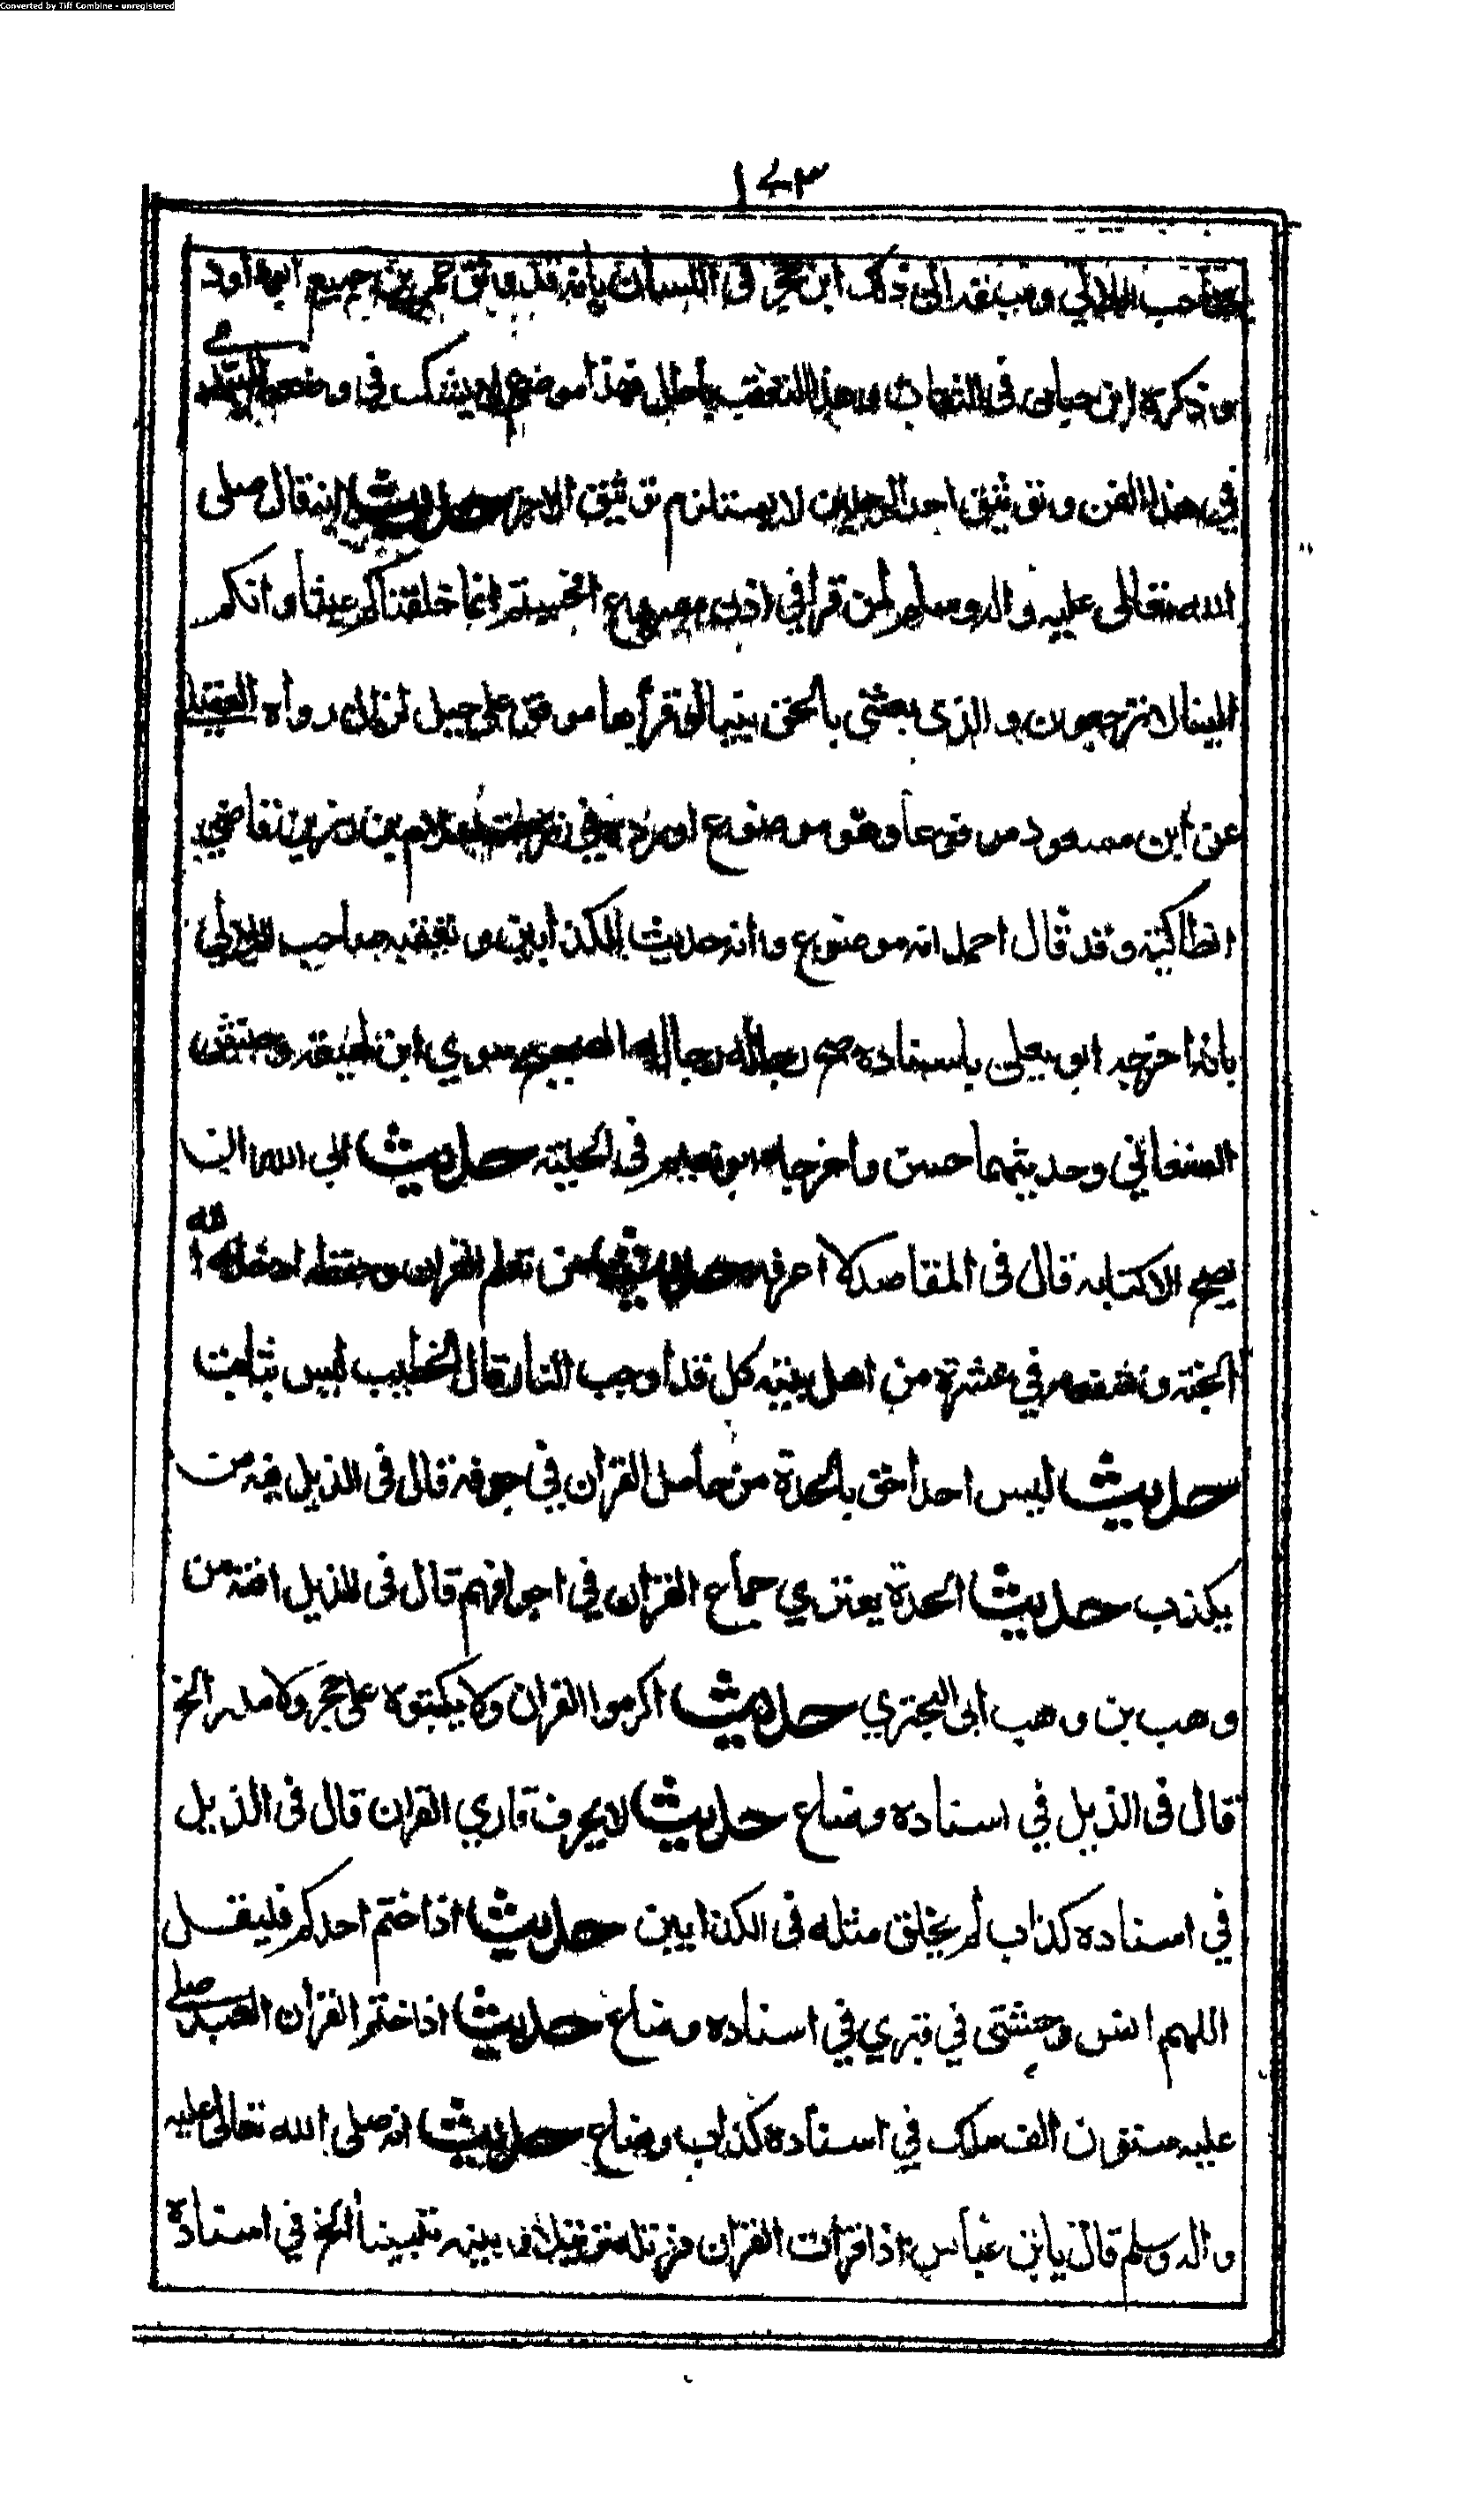 Converted by Tiff Combine - unregistered
١٧٣
صاحب اللآلي وسبقه الى ذلك ابن حجر في اللسان بانه قد وثق عمر بن جميع ابوداود
وذكره ابن حبان في الثقات وهذا التعقب باطل فهذا موضوع لا يشك في وضعه
في هذا الفن وتوثيق احد الرجلين لا يستلزم توثيق الاخر حديث انه قال صلى
الله تعالى عليه واله وسلم لمن قرا في اذن مصروع افحسبتم انما خلقناكم عبثا وانكم
الينا لا ترجعون والذي بعثني بالحق نبيا لو قرأها موقن على جبل لزال رواه العقيلي
عن ابن مسعود مرفوعا وهو موضوع اورده في ترجمة سلام بن رزين قاضي
انطاكية وقد قال احمد انه موضوع وانه حديث الكذابين وتعقبه صاحب اللآلي
بانه اخرجه ابو يعلى باسناده صح رجاله رجال الصحيح سوي ابن لهيعة وحنش
الصنعاني وحديثهما حسن واخرجه ابو نعيم في الحلية حديث ابى الله ان
يصح الا كتابه قال في المقاصد لا اعرفه حديث من تعلم القران وحفظه ادخله الله
الجنة وشفعه في عشرة من اهل بيته كل قد اوجب النار قال الخطيب ليس بثابت
حديث ليس احد احق بالحدة من حامل القرآن في جوفه قال في الذيل فيه من
يكذب حديث الحدة يعتري جماع القرآن في اجوافهم قال في الذيل افته من
وهب بن وهب ابى البختري حديث اكرموا القران ولا يكتبوه على حجر ولا مدر الخ
قال في الذيل في اسناده وضاع حديث لا يحرف قاري القران قال في الذيل
في اسناده كذاب لم يخلق مثله في الكذابين حديث اذا ختم احدكم فليقل
اللهم انس وحشتي في قبري في اسناده وضاع حديث اذا ختم القران العبد صلى
عليه ستون الف ملك في اسناده كذاب وضاع حديث انه صلى الله تعالى عليه
واله وسلم قال يا ابن عباس اذا قرات القران فرتله ترتيلا وبينه تبيينا الخ في اسناده